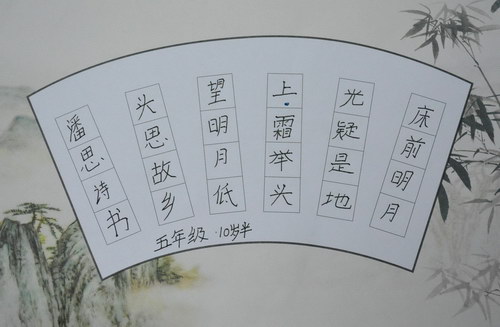 床前明月
光疑是地
上霜举头
望明月低
头思故乡
潘思诗书
五年级 10岁半